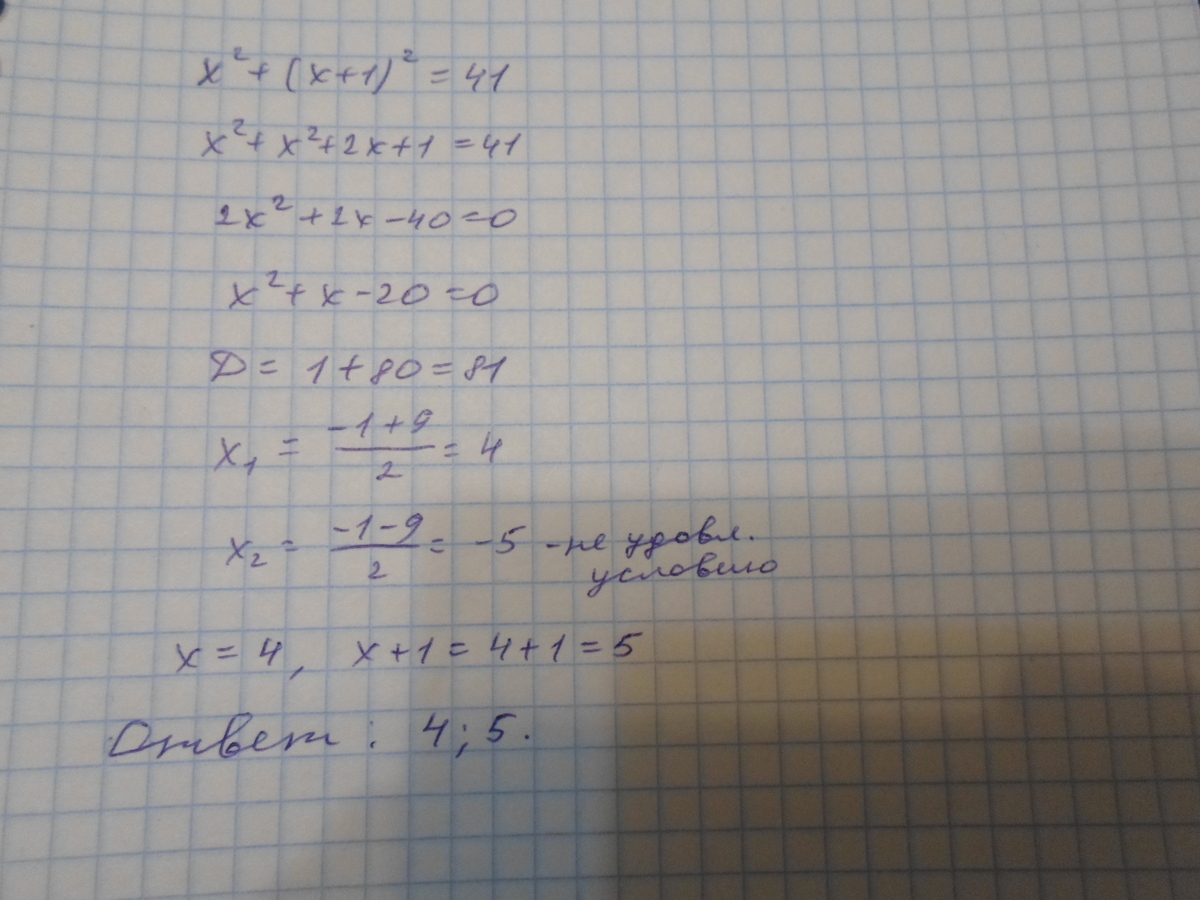 x² + (x+1)² = 41
x² + x² + 2x + 1 = 41
2x² + 2x - 40 = 0
x² + x - 20 = 0
D = 1 + 80 = 81
x₁ = (-1+9)/2 = 4
x₂ = (-1-9)/2 = -5 - не удовл.
условию
x = 4, x + 1 = 4 + 1 = 5
Ответ: 4; 5.